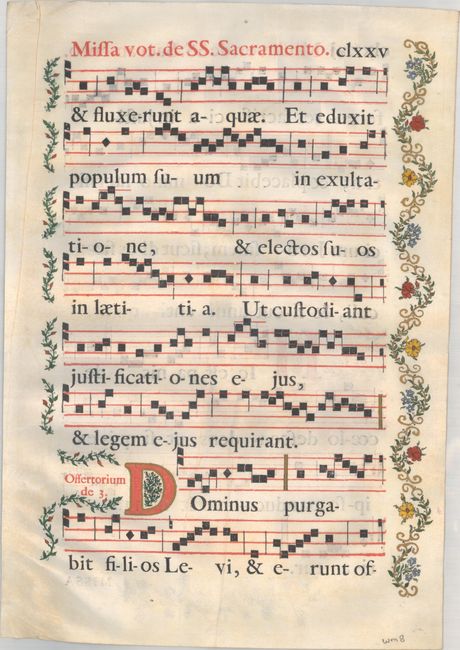 Missa vot. de SS. Sacramento. clxxv
& fluxe-runt a- quæ. Et eduxit
populum su- um in exulta-
ti- o- ne, & electos su- os
in læti- ti- a. Ut custodi- ant
justi- ficati- o- nes e- jus,
& legem e- jus requirant.
Offertorium
de 3.
Dominus purga-
bit fi- li- os Le- vi, & e- runt of-
wm 8